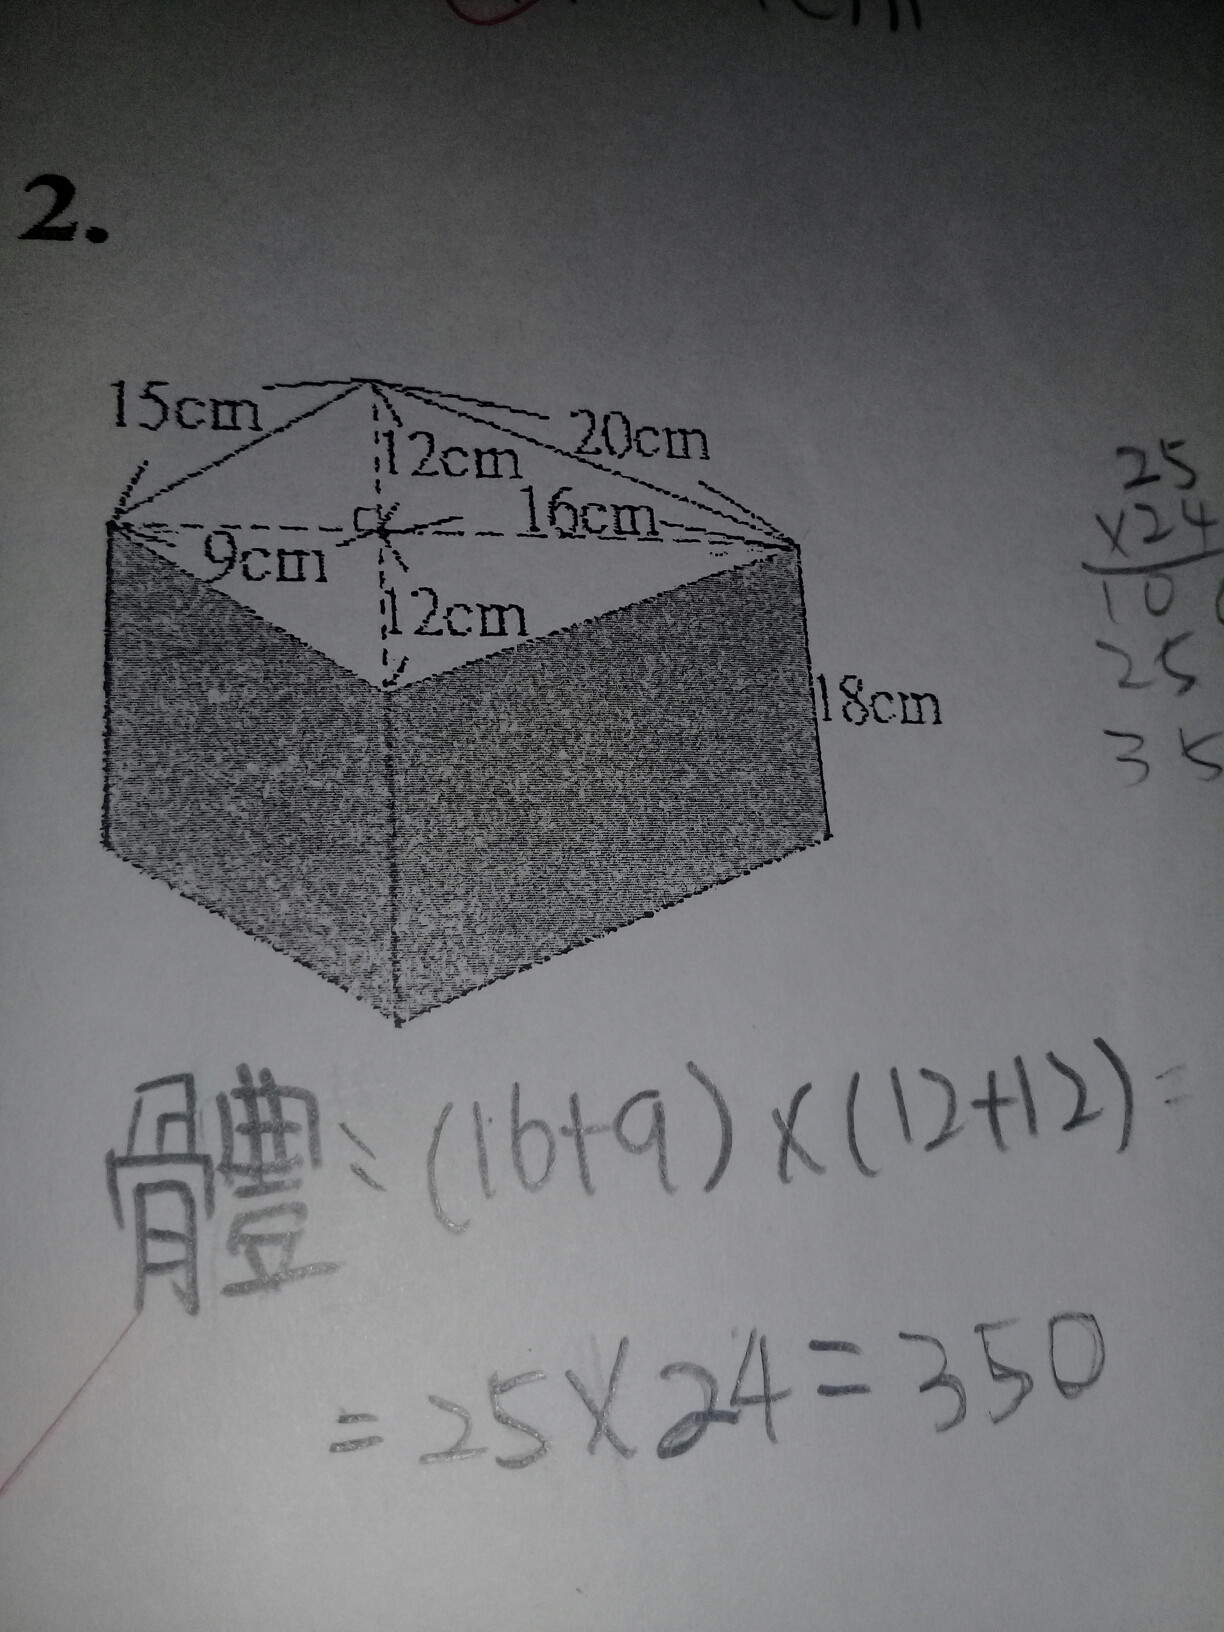 2.
15cm
20cm
12cm
16cm
9cm
12cm
18cm
25
x24
10
25
35
體、(16+9)x(12+12)=
=25x24=350